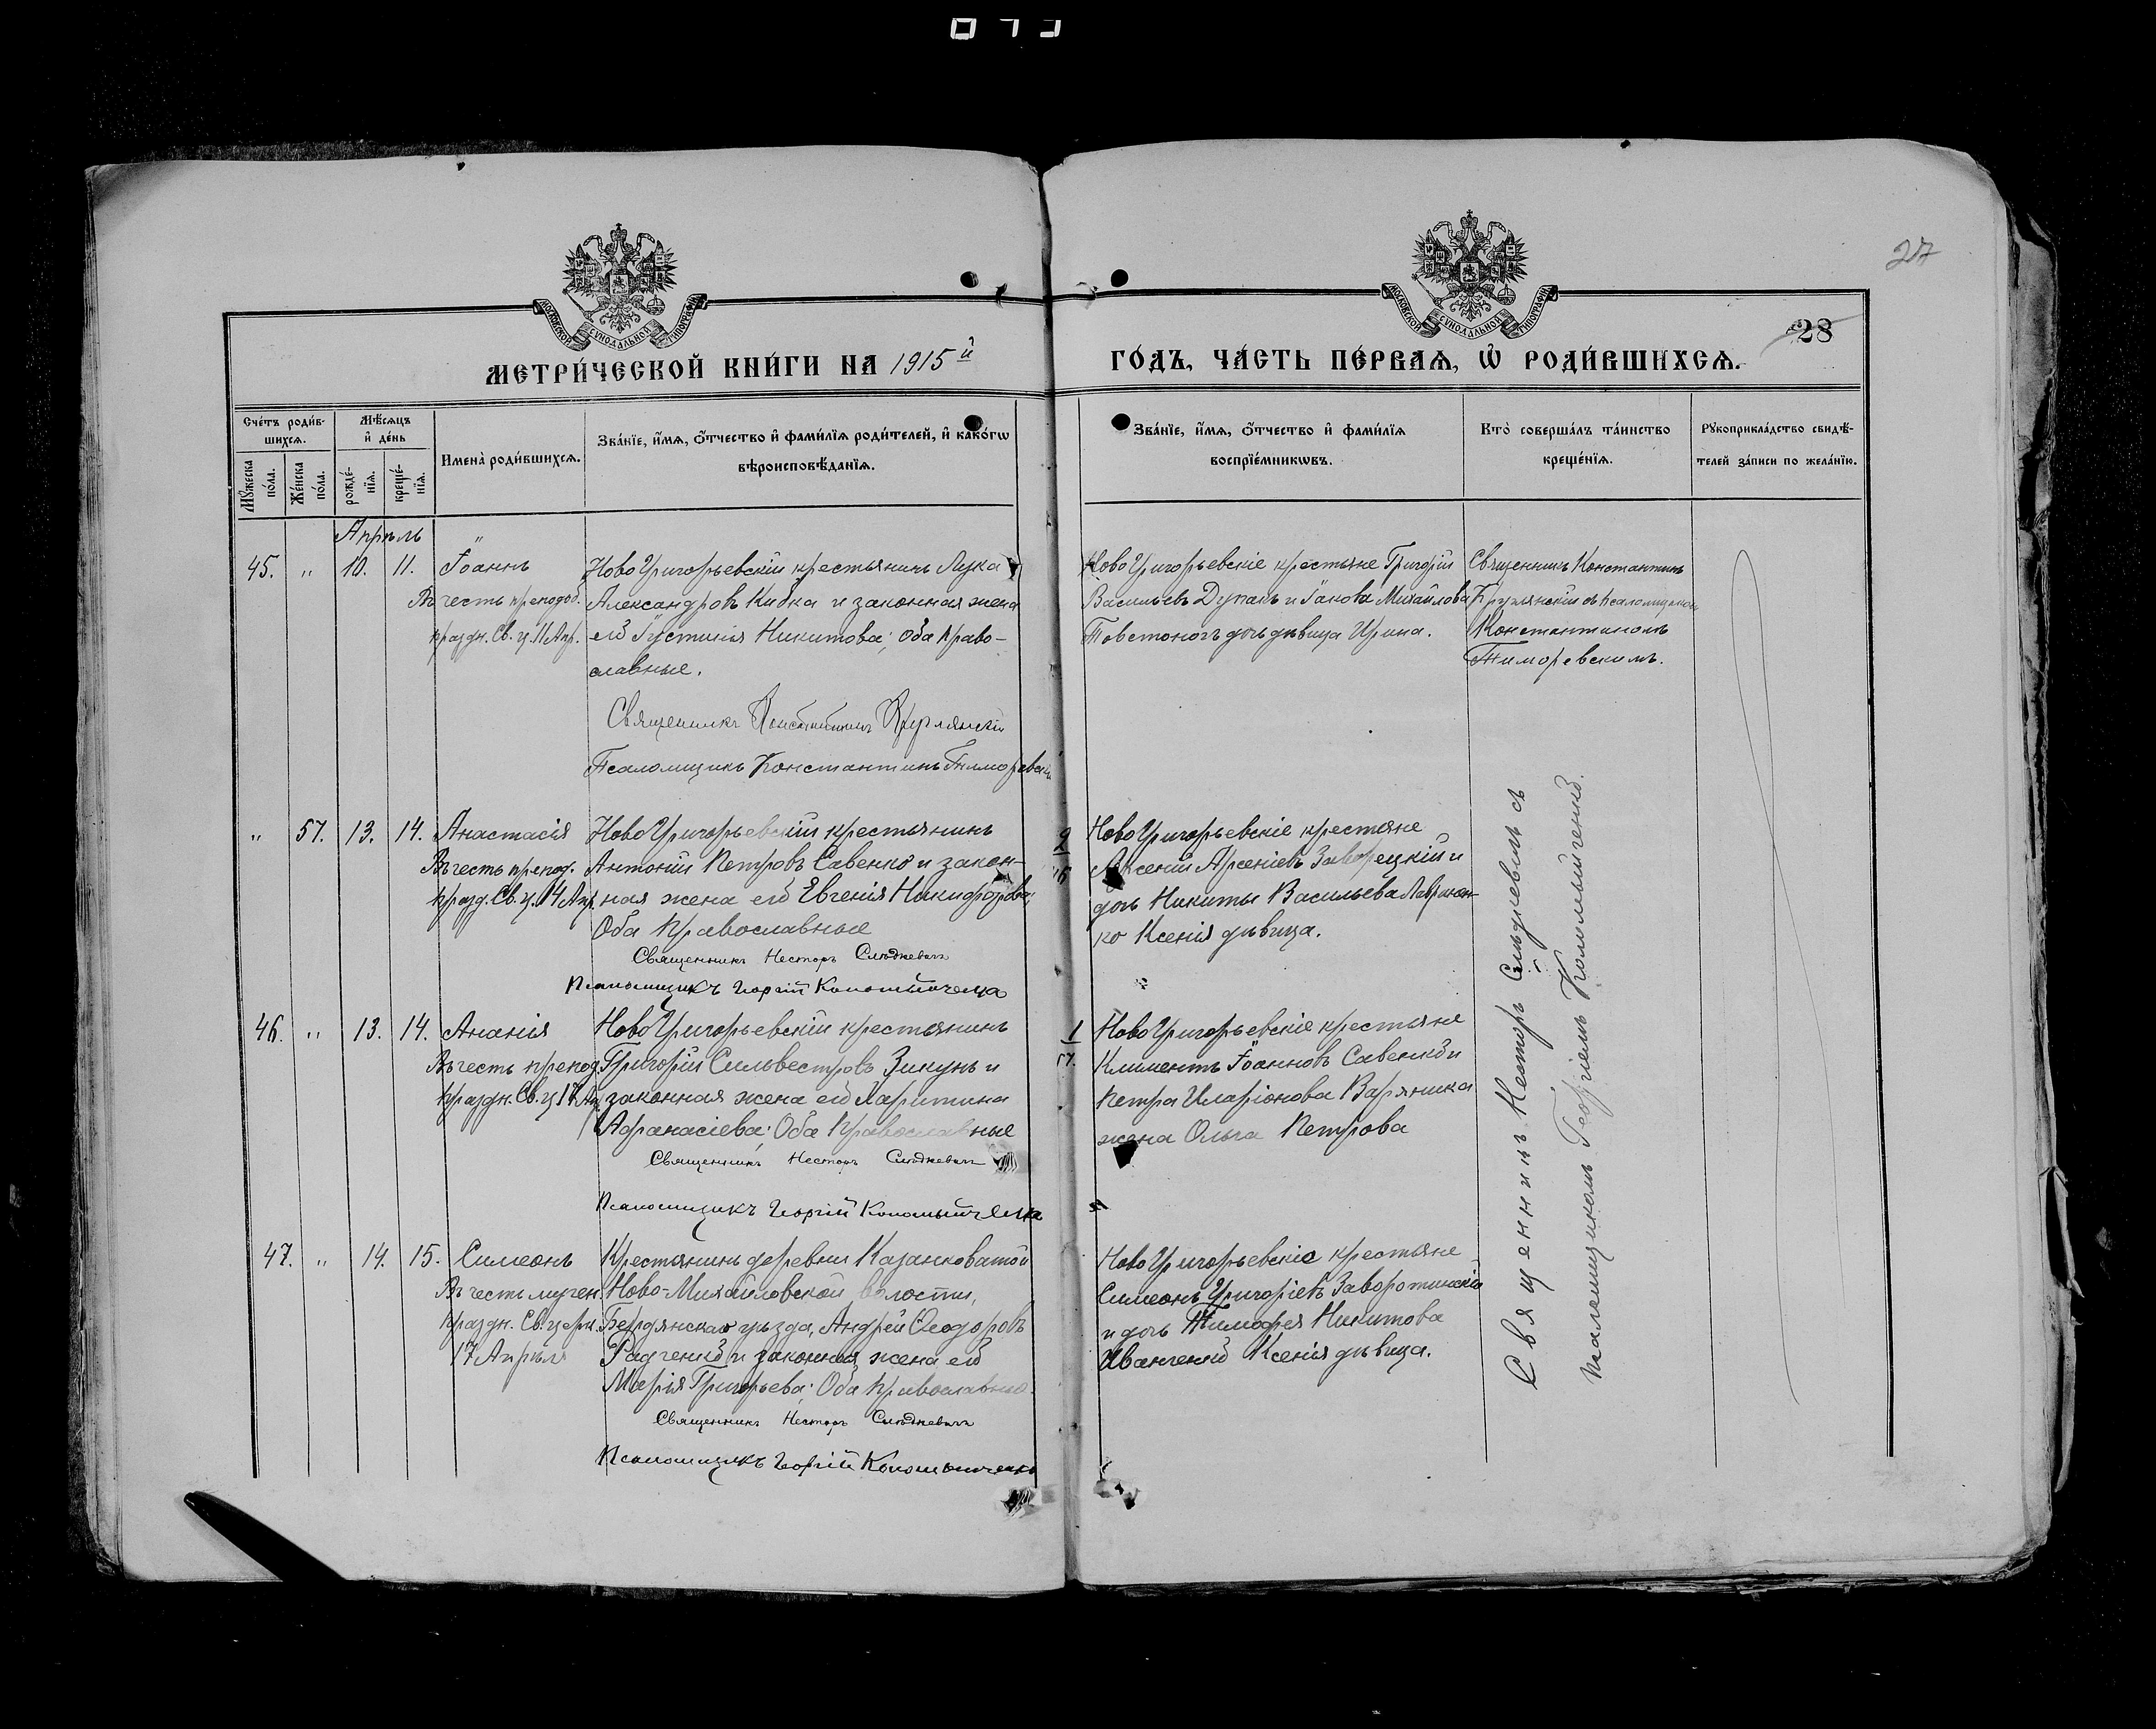 27
28
МОСКОВСКОЙ СѴНОДАЛЬНОЙ ТИПОГРАФІИ
МОСКОВСКОЙ СѴНОДАЛЬНОЙ ТИПОГРАФІИ
МЕТРИ́ЧЕСКОЙ КНИ́ГИ НА 1915й ГО́ДЪ, ЧА́СТЬ ПЕ́РВАѦ, Ѡ҆ РОДИ́ВШИХСѦ.
Сче́тъ роди́в-
шихсѧ.
Мꙋ́жеска по́ла.
Же́нска по́ла.
Мѣ́сѧцъ и҆ де́нь
рожде́-
нїѧ.
креще́-
нїѧ.
Имена̀ роди́вшихсѧ.
Зва́нїе, и҆́мѧ, ѻ҆́тчество и҆ фами́лїѧ роди́телей, и҆ како́гѡ
вѣроисповѣ́данїѧ.
Зва́нїе, и҆́мѧ, ѻ҆́тчество и҆ фами́лїѧ
воспрїе́мникѡвъ.
Кто̀ соверша́лъ та́инство
креще́нїѧ.
Рꙋкоприкла́дство свидѣ́-
телей за́писи по жела́нїю.
Апрѣль
45. " 10. 11. Іоаннъ
Въ честь преподоб.
праздн. Св. ц. 11 Апр.
НовоГригорьевскій крестьянинъ Лука
Александровъ Кибка и законная жена
его Іустинія Никитова; оба право-
славные.
Священникъ Константинъ
Псаломщикъ Константинъ Тиморевскій
НовоГригорьевскіе крестьяне Григорій
Васильевъ Дупакъ и Іакова Михайлова
Товстоногъ дочь дѣвица Ирина.
Священникъ Константинъ
съ псаломщикомъ
Константиномъ
Тиморевскимъ.
" 57. 13. 14. Анастасія
Въ честь препод.
празд. Св. ц. 14 Апр.
НовоГригорьевскій крестьянинъ
Антоній Петровъ Савенко и закон-
ная жена его Евгенія Никифорова;
Оба Православные
Священникъ Несторъ Слѣдкевичъ
Псаломщикъ Георгій Коломыйченко
2
НовоГригорьевскіе крестьяне
Арсеніевъ и
дочь Никиты Васильева Лавринен-
ко Ксенія дѣвица.
46. " 13. 14. Ананія
Въ честь препод.
праздн. Св. ц. 17 Апр.
НовоГригорьевскій крестьянинъ
Григорій Сильвестровъ Зикунъ и
законная жена его Харитина
Афанасіева; Оба Православные
Священникъ Несторъ Слѣдкевичъ
Псаломщикъ Георгій Коломыйченко
1
57.
НовоГригорьевскіе крестьяне
Климентъ Іоанновъ Савенко и
Петра Иларіонова Вареника
жена Ольга Петрова
47. " 14. 15. Симеонъ
Въ честь мучен.
праздн. Св. церк.
17 Апрѣля
Крестьянинъ деревни Казанковатой
Ново-Михайловской волости,
Бердянскаго уѣзда, Андрей Ѳеодоровъ
Радченко и законная жена его
Марія Григорьева; Оба Православные.
Священникъ Несторъ Слѣдкевичъ
Псаломщикъ Георгій Коломыйченко
НовоГригорьевскіе крестьяне
Симеонъ Григоріевъ Заворотинскій
и дочь Тимофея Никитова
Иванченко Ксенія дѣвица.
Священникъ Несторъ Слѣдкевичъ съ
Псаломщикомъ Георгіемъ Коломыйченко.